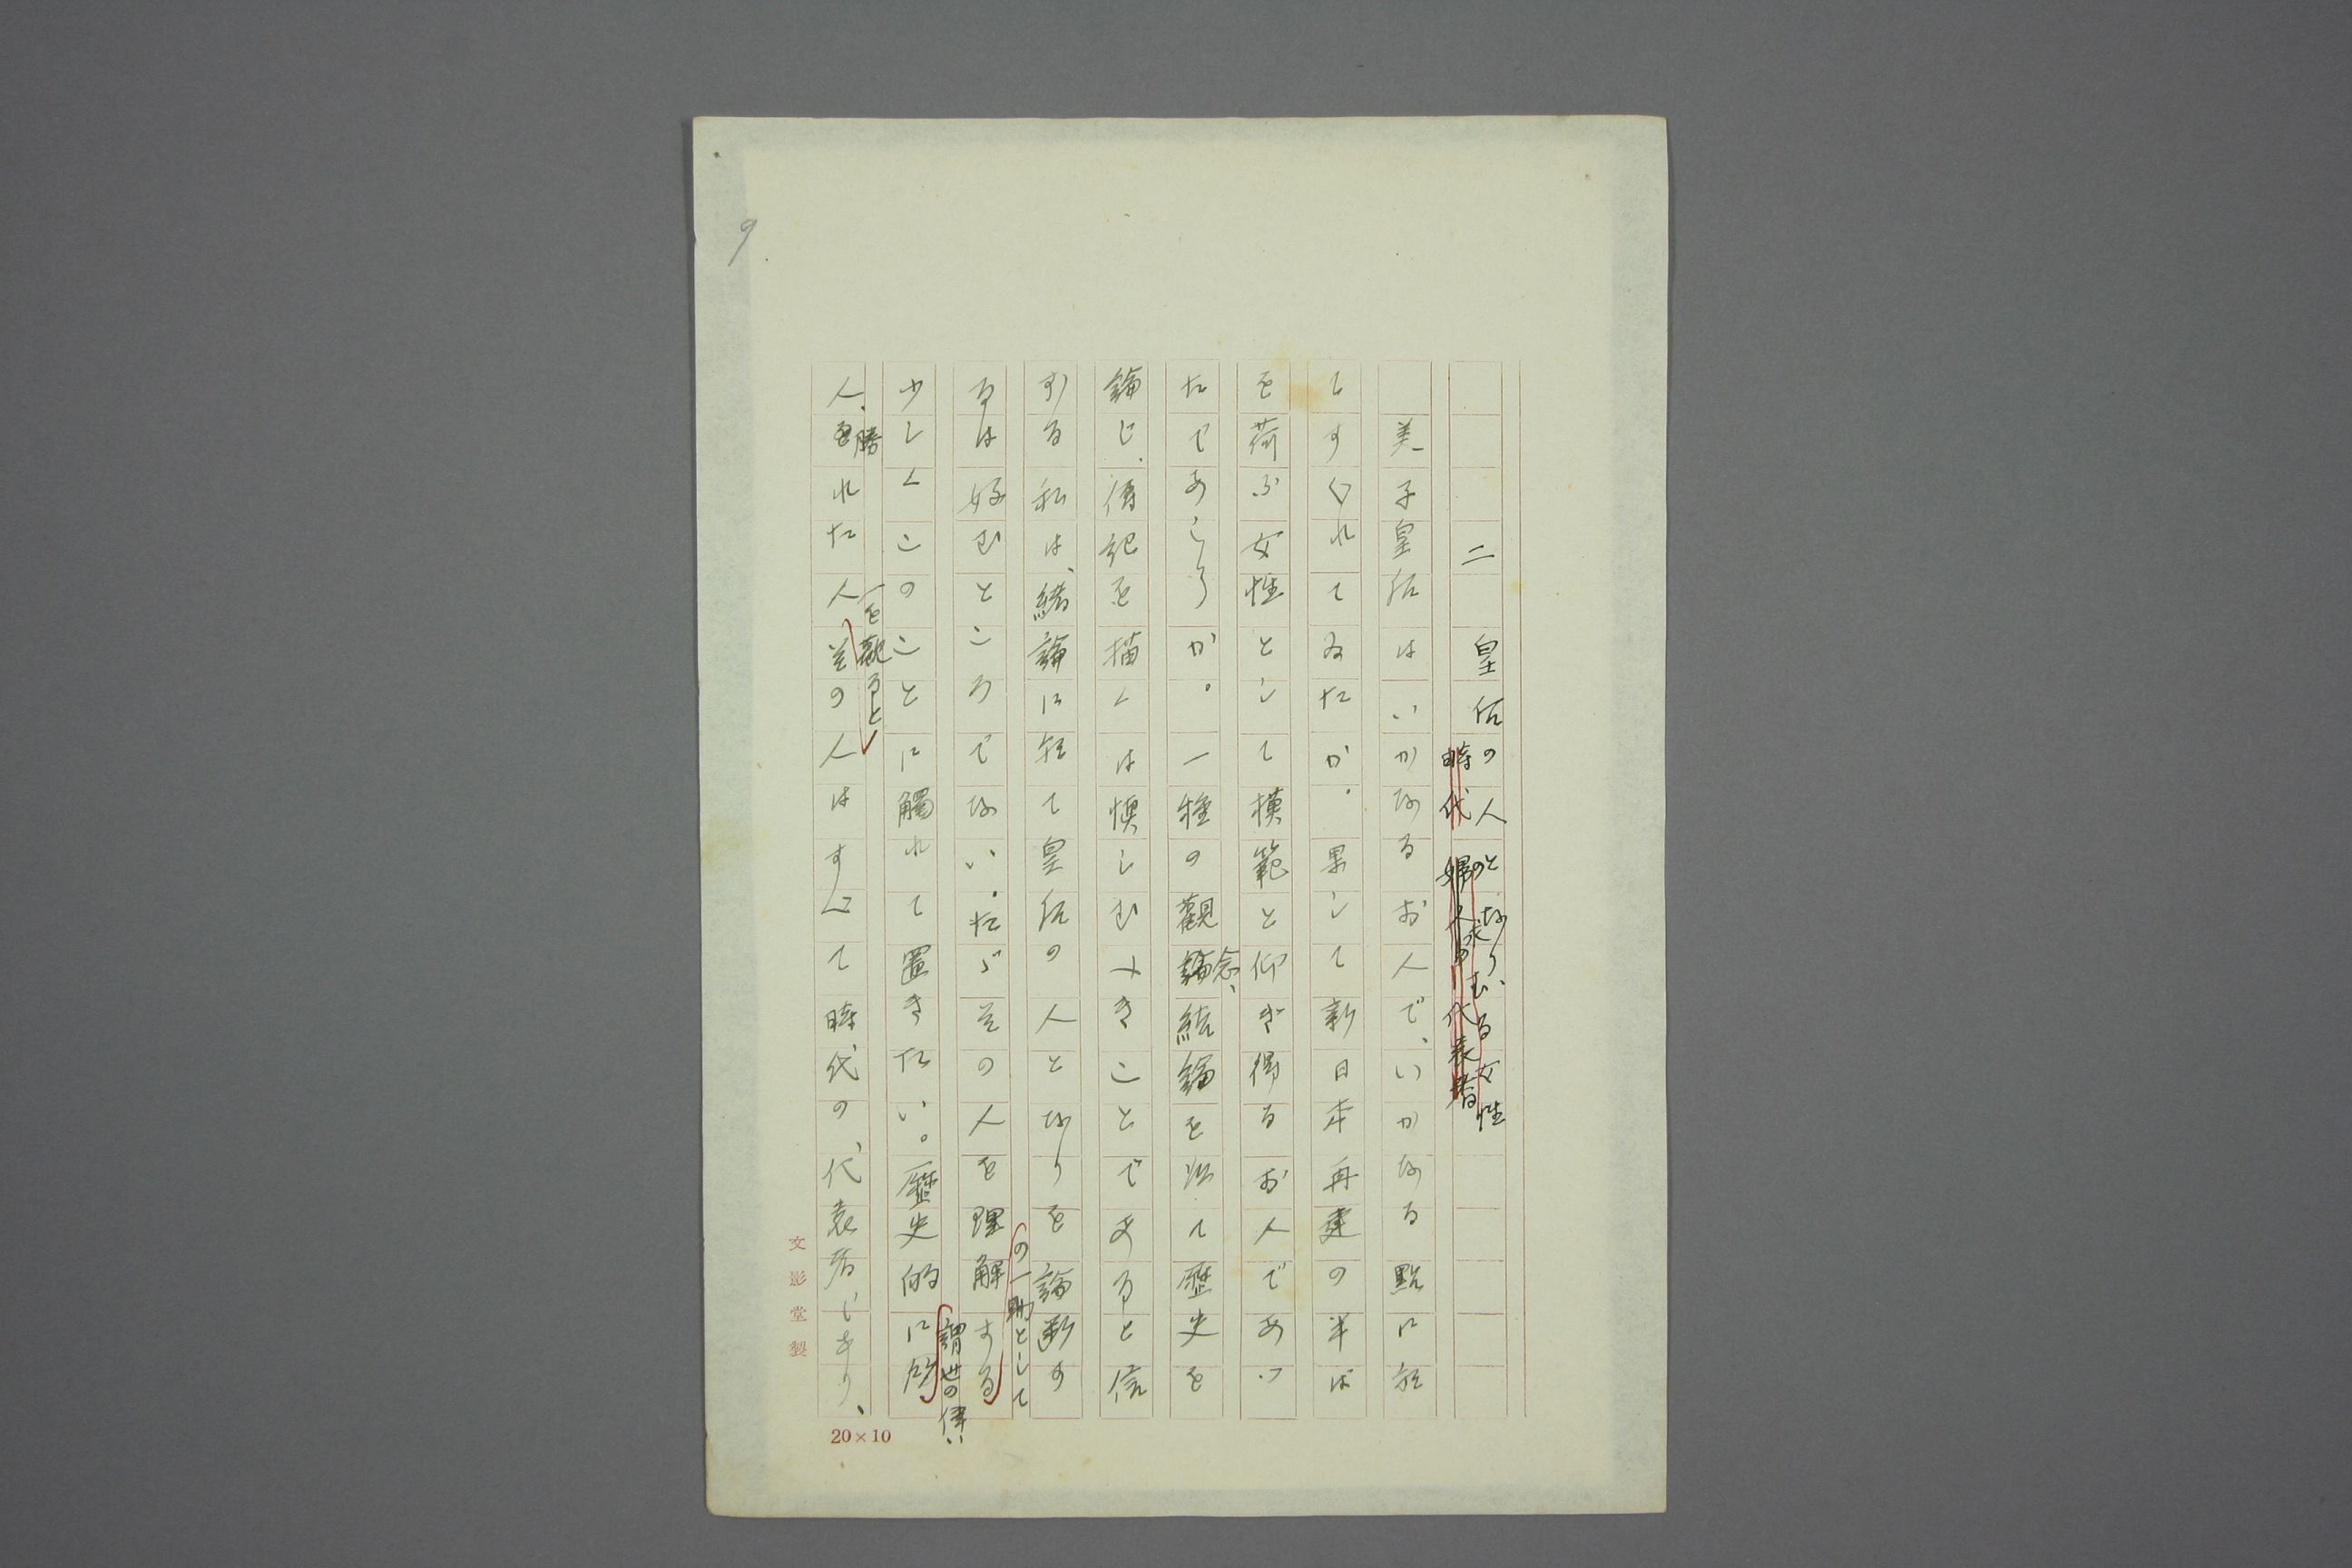 9
二 皇后の人となり
の求むる女性
時代 婦人の代表者
美子皇后はいかなるお人で、いかなる點に於
てすぐれてゐたか。果して新日本再建の半ば
を荷ふ女性として模範と仰ぎ得るお人であつ
たであらうか。一種の觀論結論を以て歴史を
念、
論じ、傳記を描くは愼しむべきことであると信
ずる私は、緒論に於て皇后の人となりを論斷す
の一助として
るは好むところでない。たゞ其の人を理解する
謂世の偉い
少しくこのことに觸れて置きたい。歴史的に
一を觀ると
人、勝れた人其の人はすべて時代の、代表者であり、
文影堂製
20×10